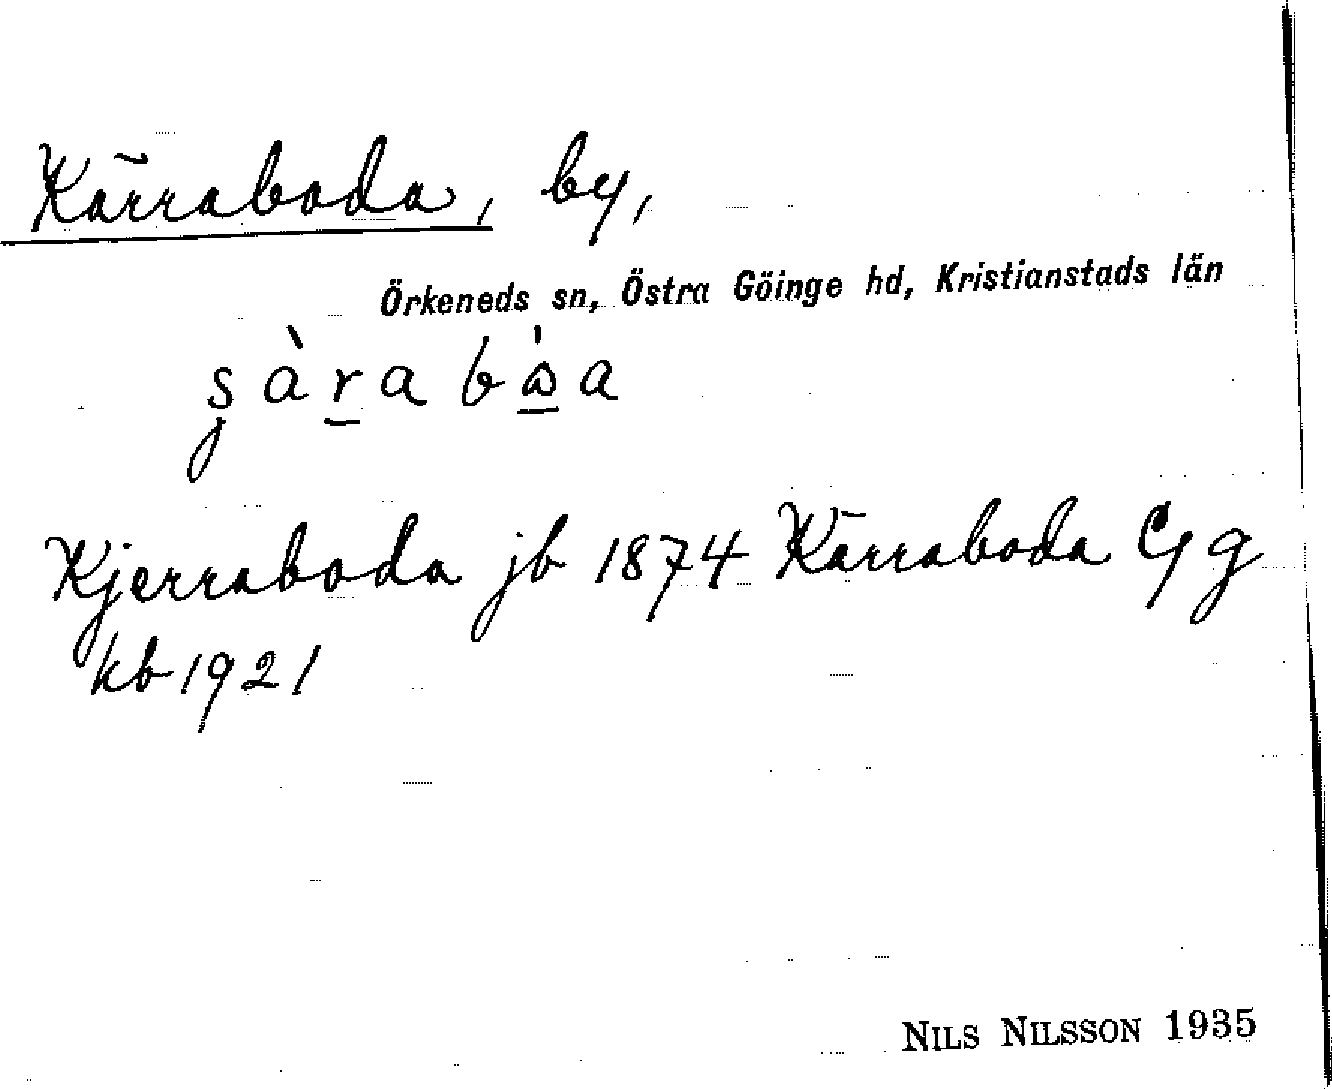 Kärraboda, by,
Örkeneds sn, Östra Göinge hd, Kristianstads län
Kjerraboda jb 1874 Kärraboda Gg
kb 1921
NILS NILSSON 1935